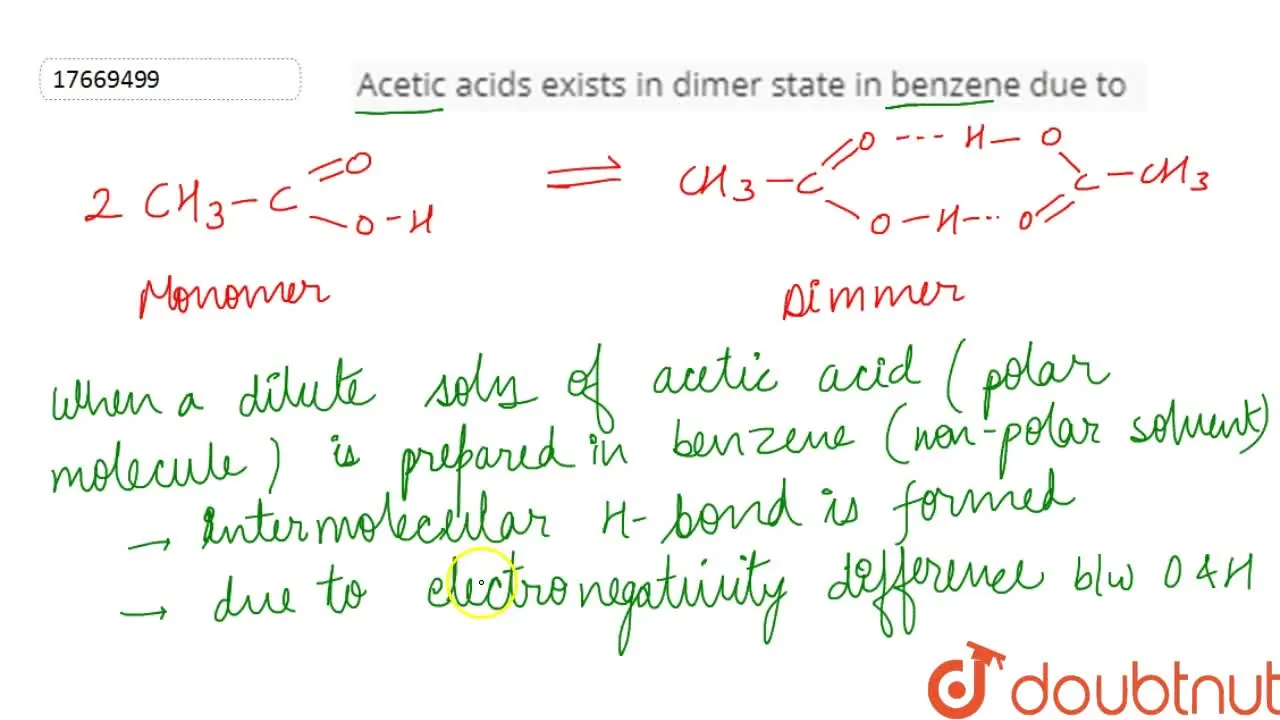 17669499
Acetic acids exists in dimer state in benzene due to
2 CH3-C=O O-H ⇌ CH3-C=O---H-O O-H---O=C-CH3
Monomer Dimmer
When a dilute soln of acetic acid (polar
molecule) is prepared in benzene (non-polar solvent)
→ Intermolecular H-bond is formed
→ due to electronegativity difference b/w O & H
doubtnut